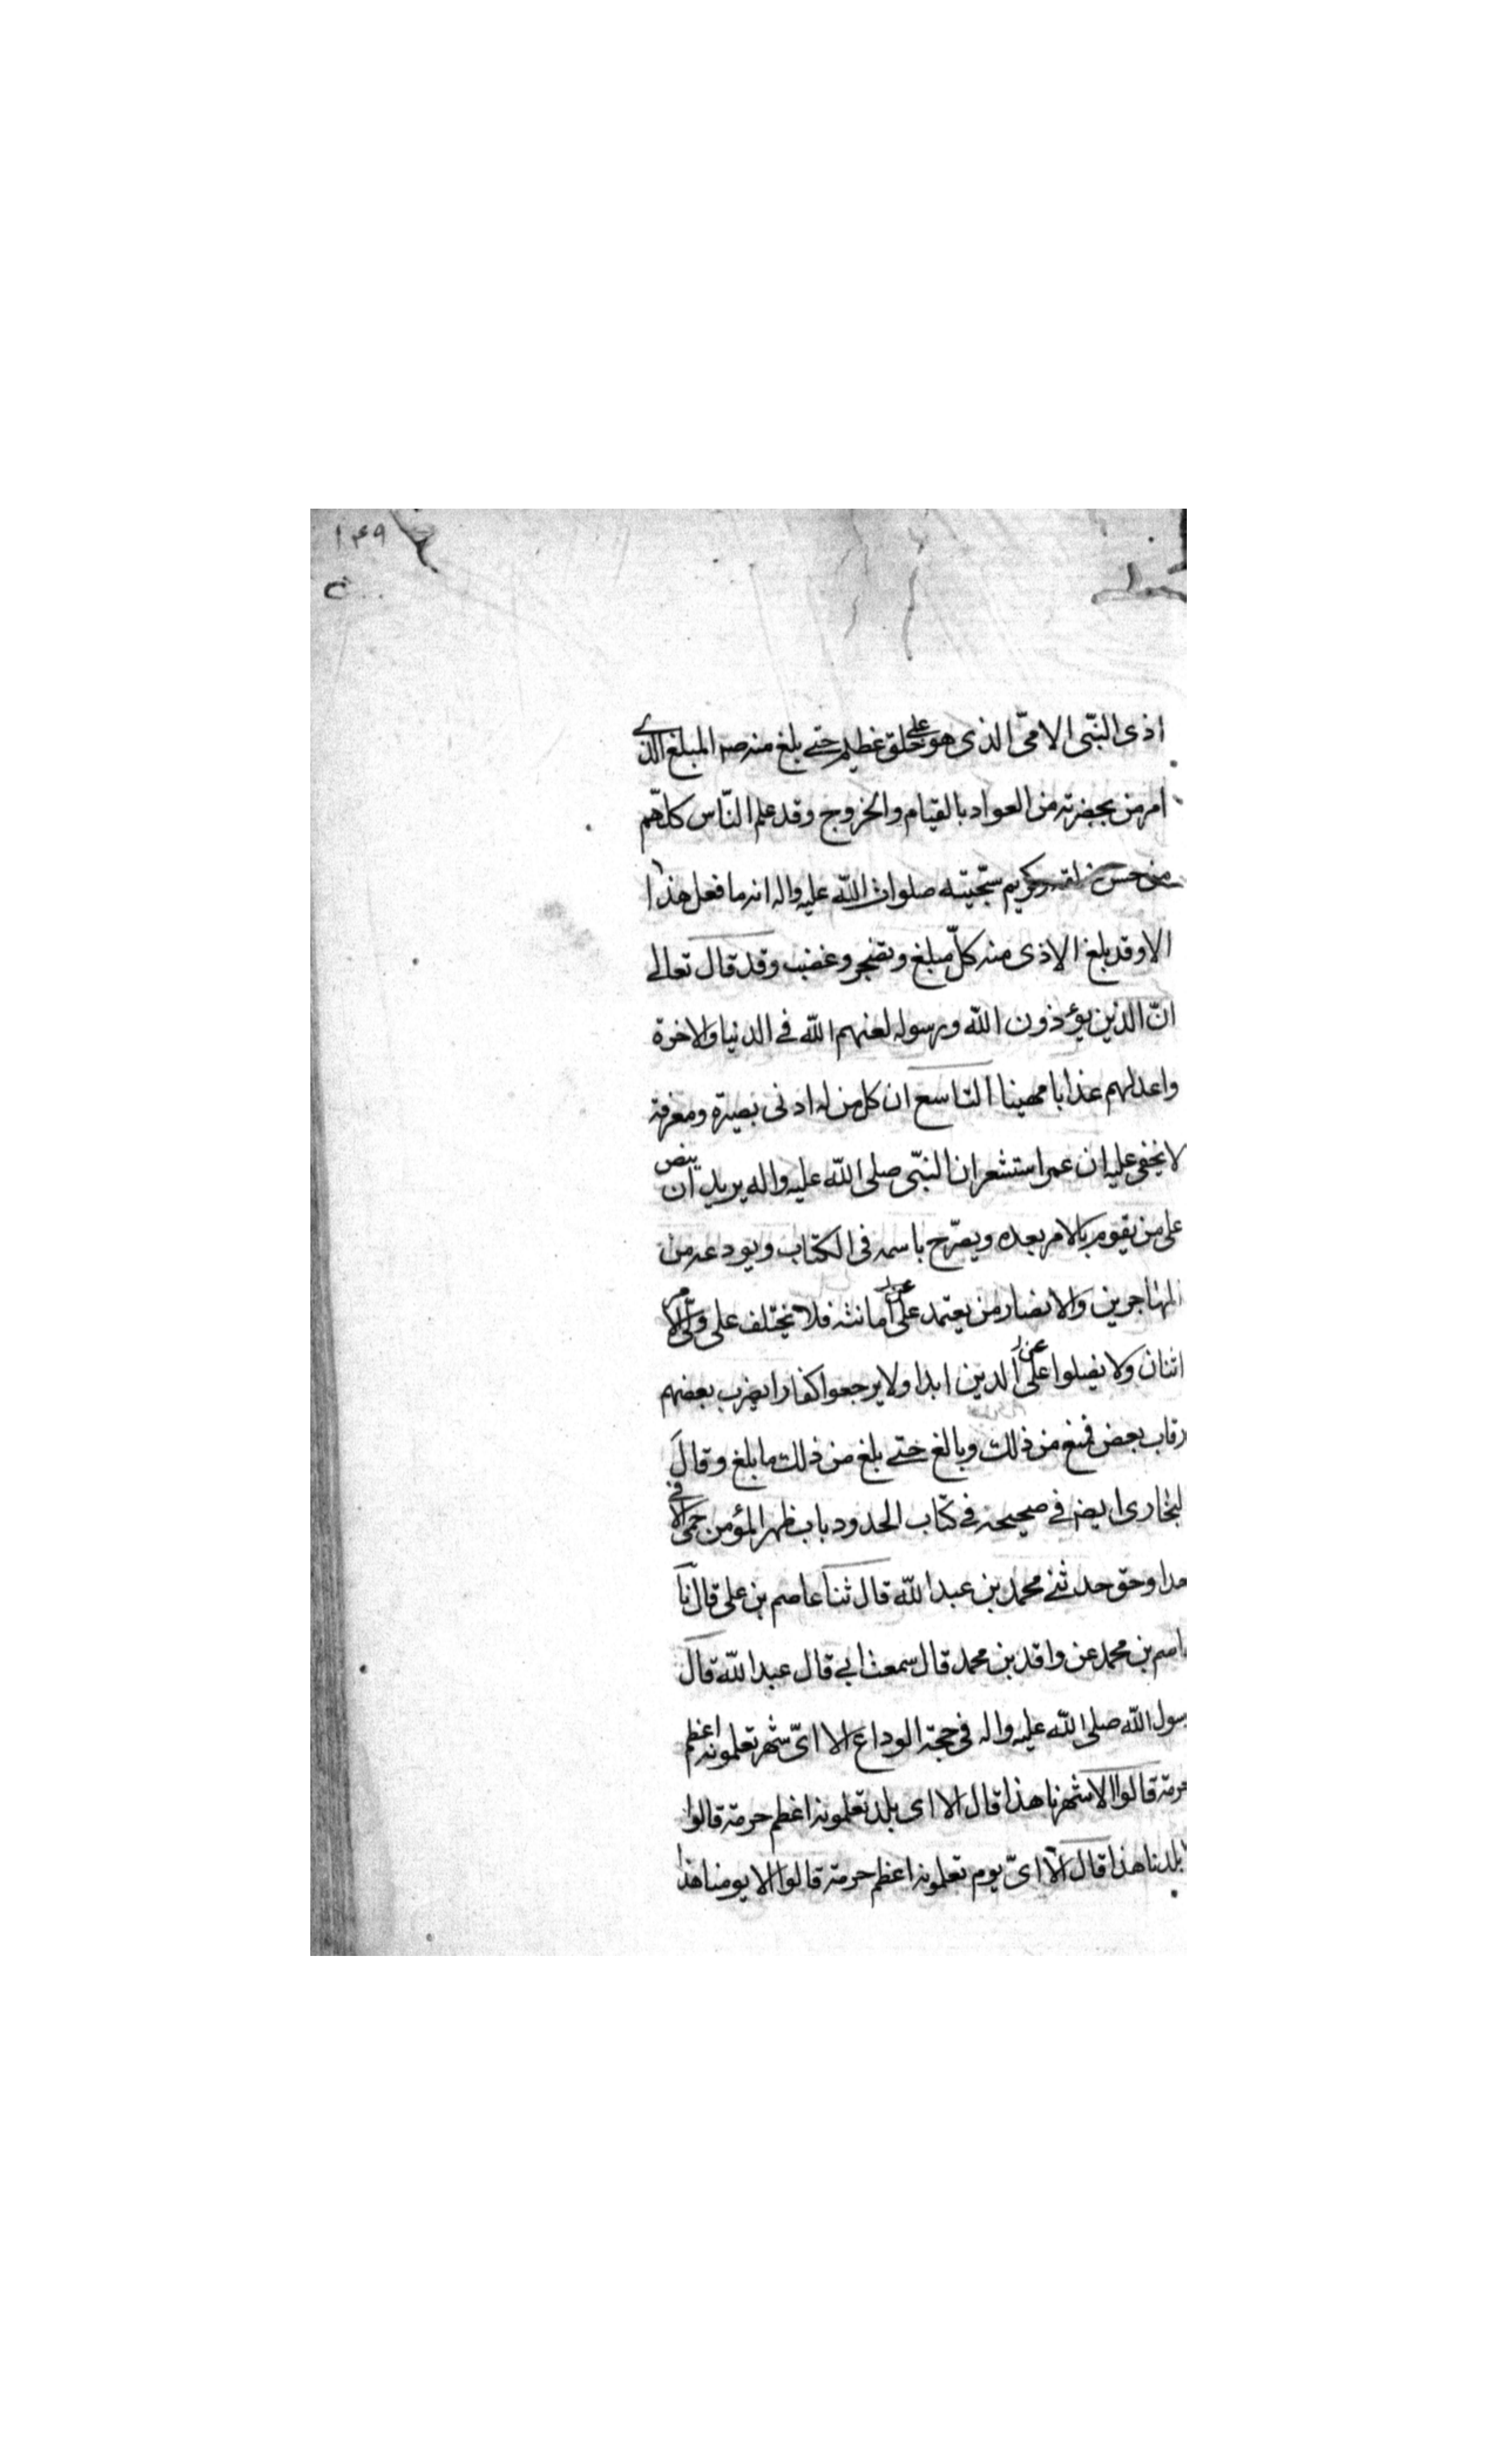 ۱۴۹
اذى النبّى الامىّ الذى هو على خلق عظيم حتے بلغ منه ص المبلغ الذے
امر من بحضرته من العواد بالقيام والخروج وقد علم النّاس كلّهم
من حسن خلقه وكريم سجّيته صلوات اللّٰه عليه واله انه ما فعل هذا
الا وقد بلغ الاذى منه كلّ مبلغ وتضجر وغضب وقد قال تعالے
انّ الذين يؤذون اللّٰه ورسوله لعنهم اللّٰه فے الدنيا والاخرة
واعد لهم عذابا مهينا التاسع ان كل من له ادنى بصيرة ومعرفة
لا يخفى عليه ان عمر استشعر ان النبّى صلى اللّٰه عليه واله يريد ان ينص
على من يقوم بالامر بعده ويصّرح باسمه فى الكتاب ويودعه من
المهاجرين والانصار من يعتمد على امانته فلا يختلف على ولّى الامر
اثنان ولا يضلوا عن الدين ابدا ولا يرجعوا كفارا يضرب بعضهم
رقاب بعض فمنع من ذلك وبالغ حتے بلغ من ذلك ما بلغ وقال
لبخارى ايضا فے صحيحه فے كتاب الحدود باب ظهر المؤمن حمى الا فے
حد او حق حدثنے محمد بن عبد اللّٰه قال ثنا عاصم بن على قال نّا
عاصم بن محمد عن واقد بن محمد قال سمعت ابے قال عبد اللّٰه قال
رسول اللّٰه صلى اللّٰه عليه واله فى حجة الوداع الا اىّ شهر تعلمونه اعظم
حرمة قالوا الا شهرنا هذا قال الا اى بلد تعلمونه اعظم حرمة قالوا
بلدنا هذا قال الا اىّ يوم تعلمونه اعظم حرمة قالوا الا يومنا هذا